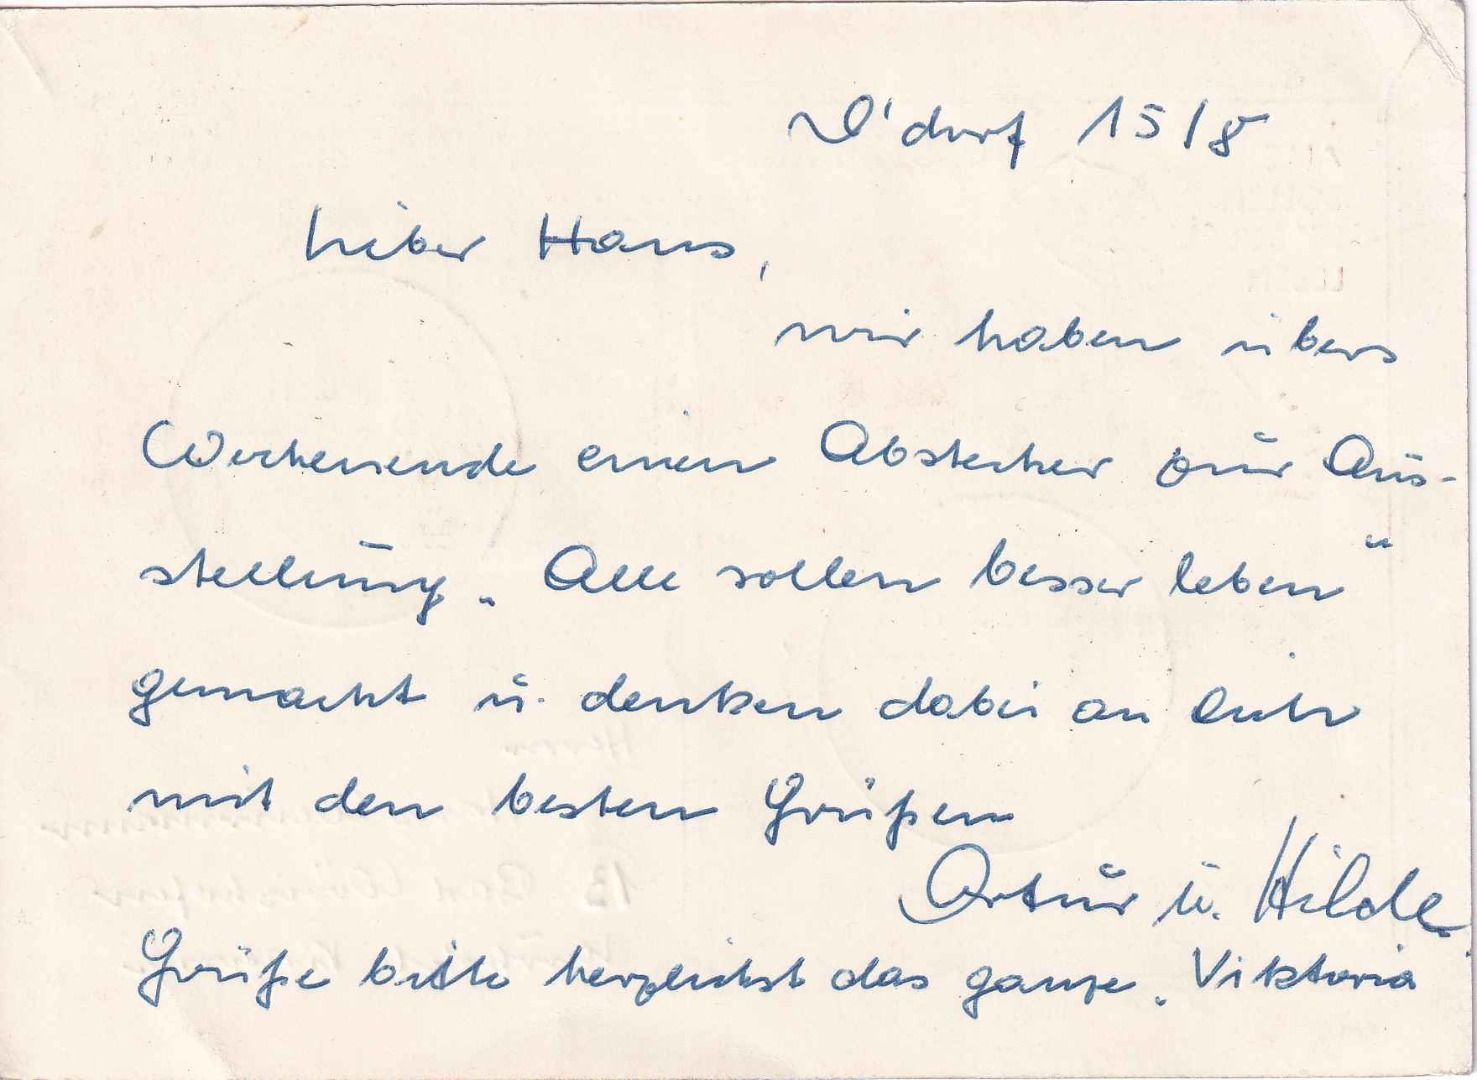 D'dorf 15/8
Lieber Hans,
wir haben übers
Wochenende einen Abstecher zur Aus-
stellung „Alle sollen besser leben“
gemacht u. denken dabei an Dich
mit den besten Grüßen
Artur u. Hilde
Grüße bitte herzlichst das ganze „Viktoria“